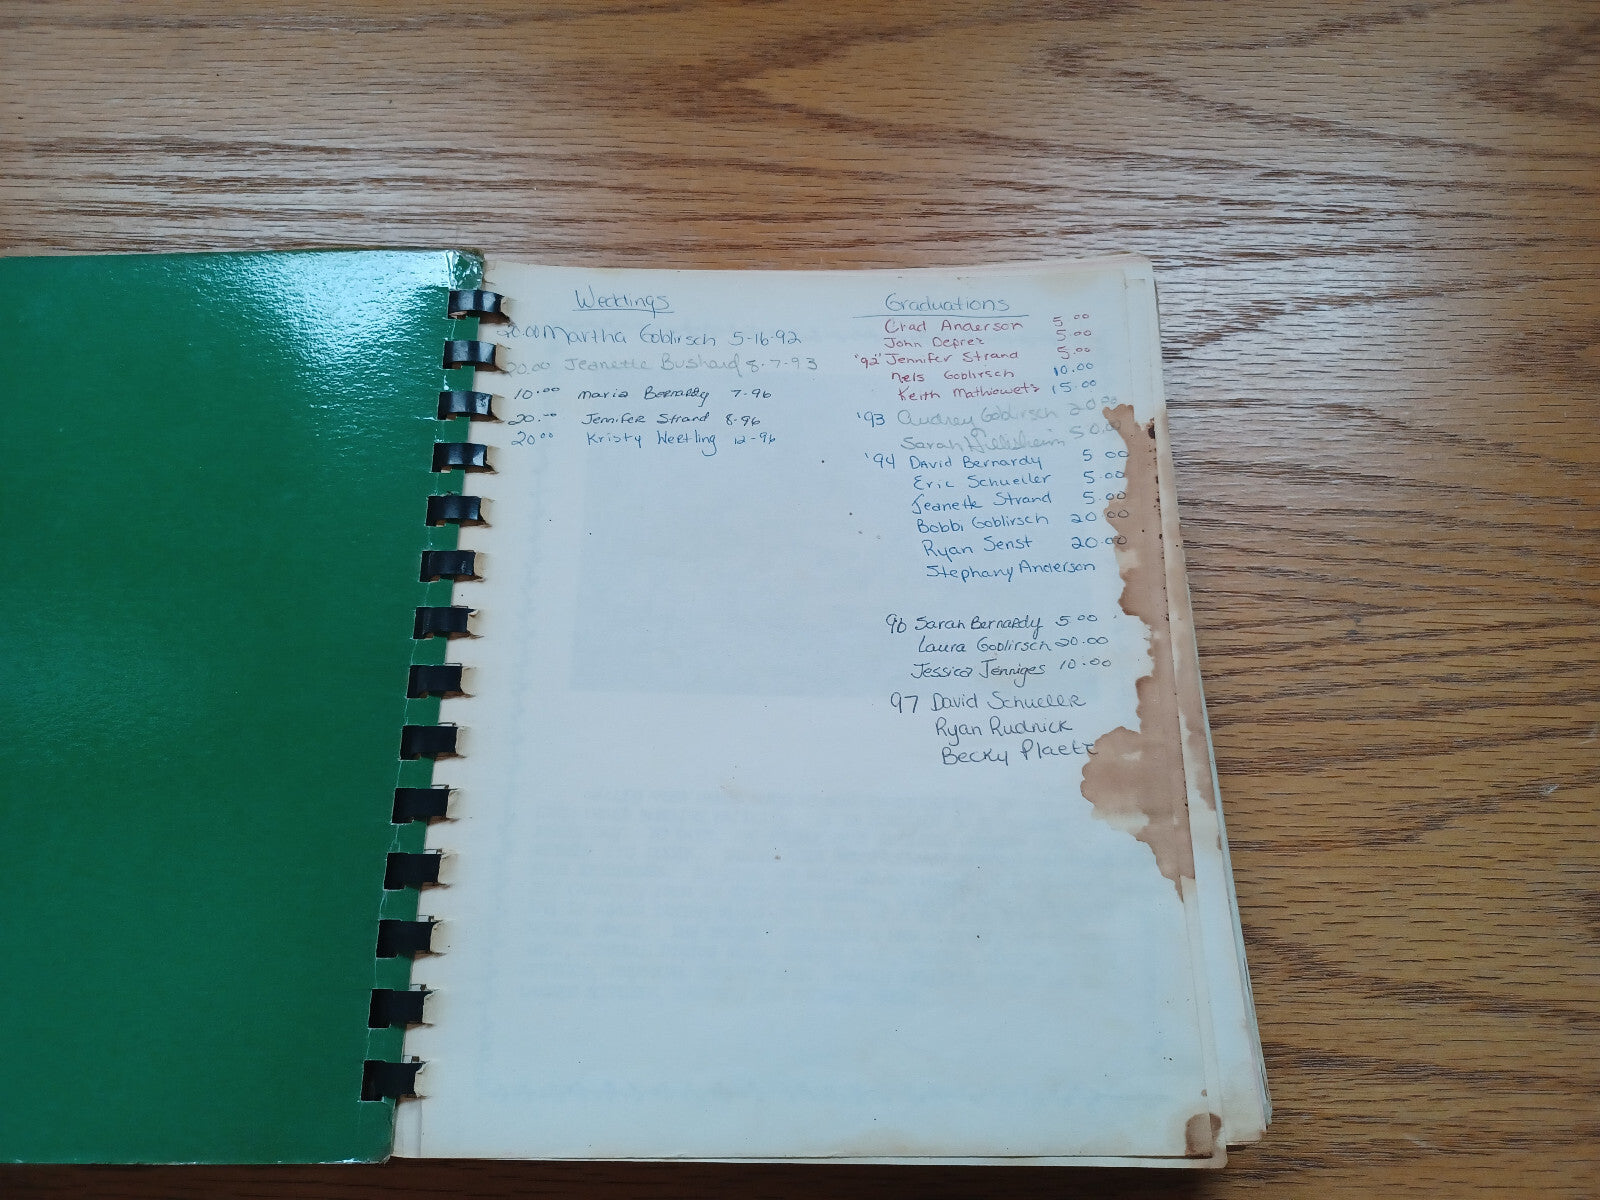 Weddings
20.00 Martha Goblirsch 5-16-92
20.00 Jeanette Bushard 8-7-93
10.00 Maria Bernardy 7-96
20.00 Jennifer Strand 8-96
20.00 Kristy Neetling 12-96
Graduations
Chad Anderson 5.00
John Deprez 5.00
'92" Jennifer Strand 5.00
Nels Goblirsch 10.00
Keith Mathiowetz 15.00
'93 Audrey Goblirsch 20.00
Sarah 50.00
'94 David Bernardy 5.00
Eric Schueller 5.00
Jeanette Strand 5.00
Bobbi Goblirsch 20.00
Ryan Senst 20.00
Stephany Anderson
96 Sarah Bernardy 5.00
Laura Goblirsch 20.00
Jessica Jenniges 10.00
97 David Schueller
Ryan Rudnick
Becky Plaetz